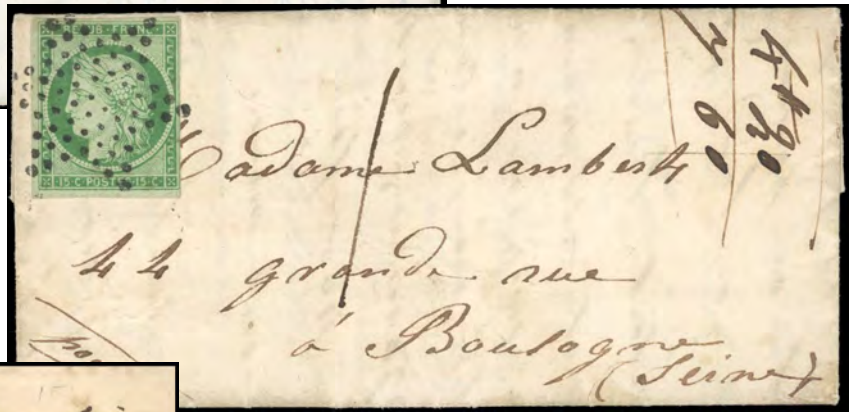 REPUB · FRANC
15 C · POSTES · 15 C
Madame Lambert
44 grande rue
à Boulogne
(Seine)